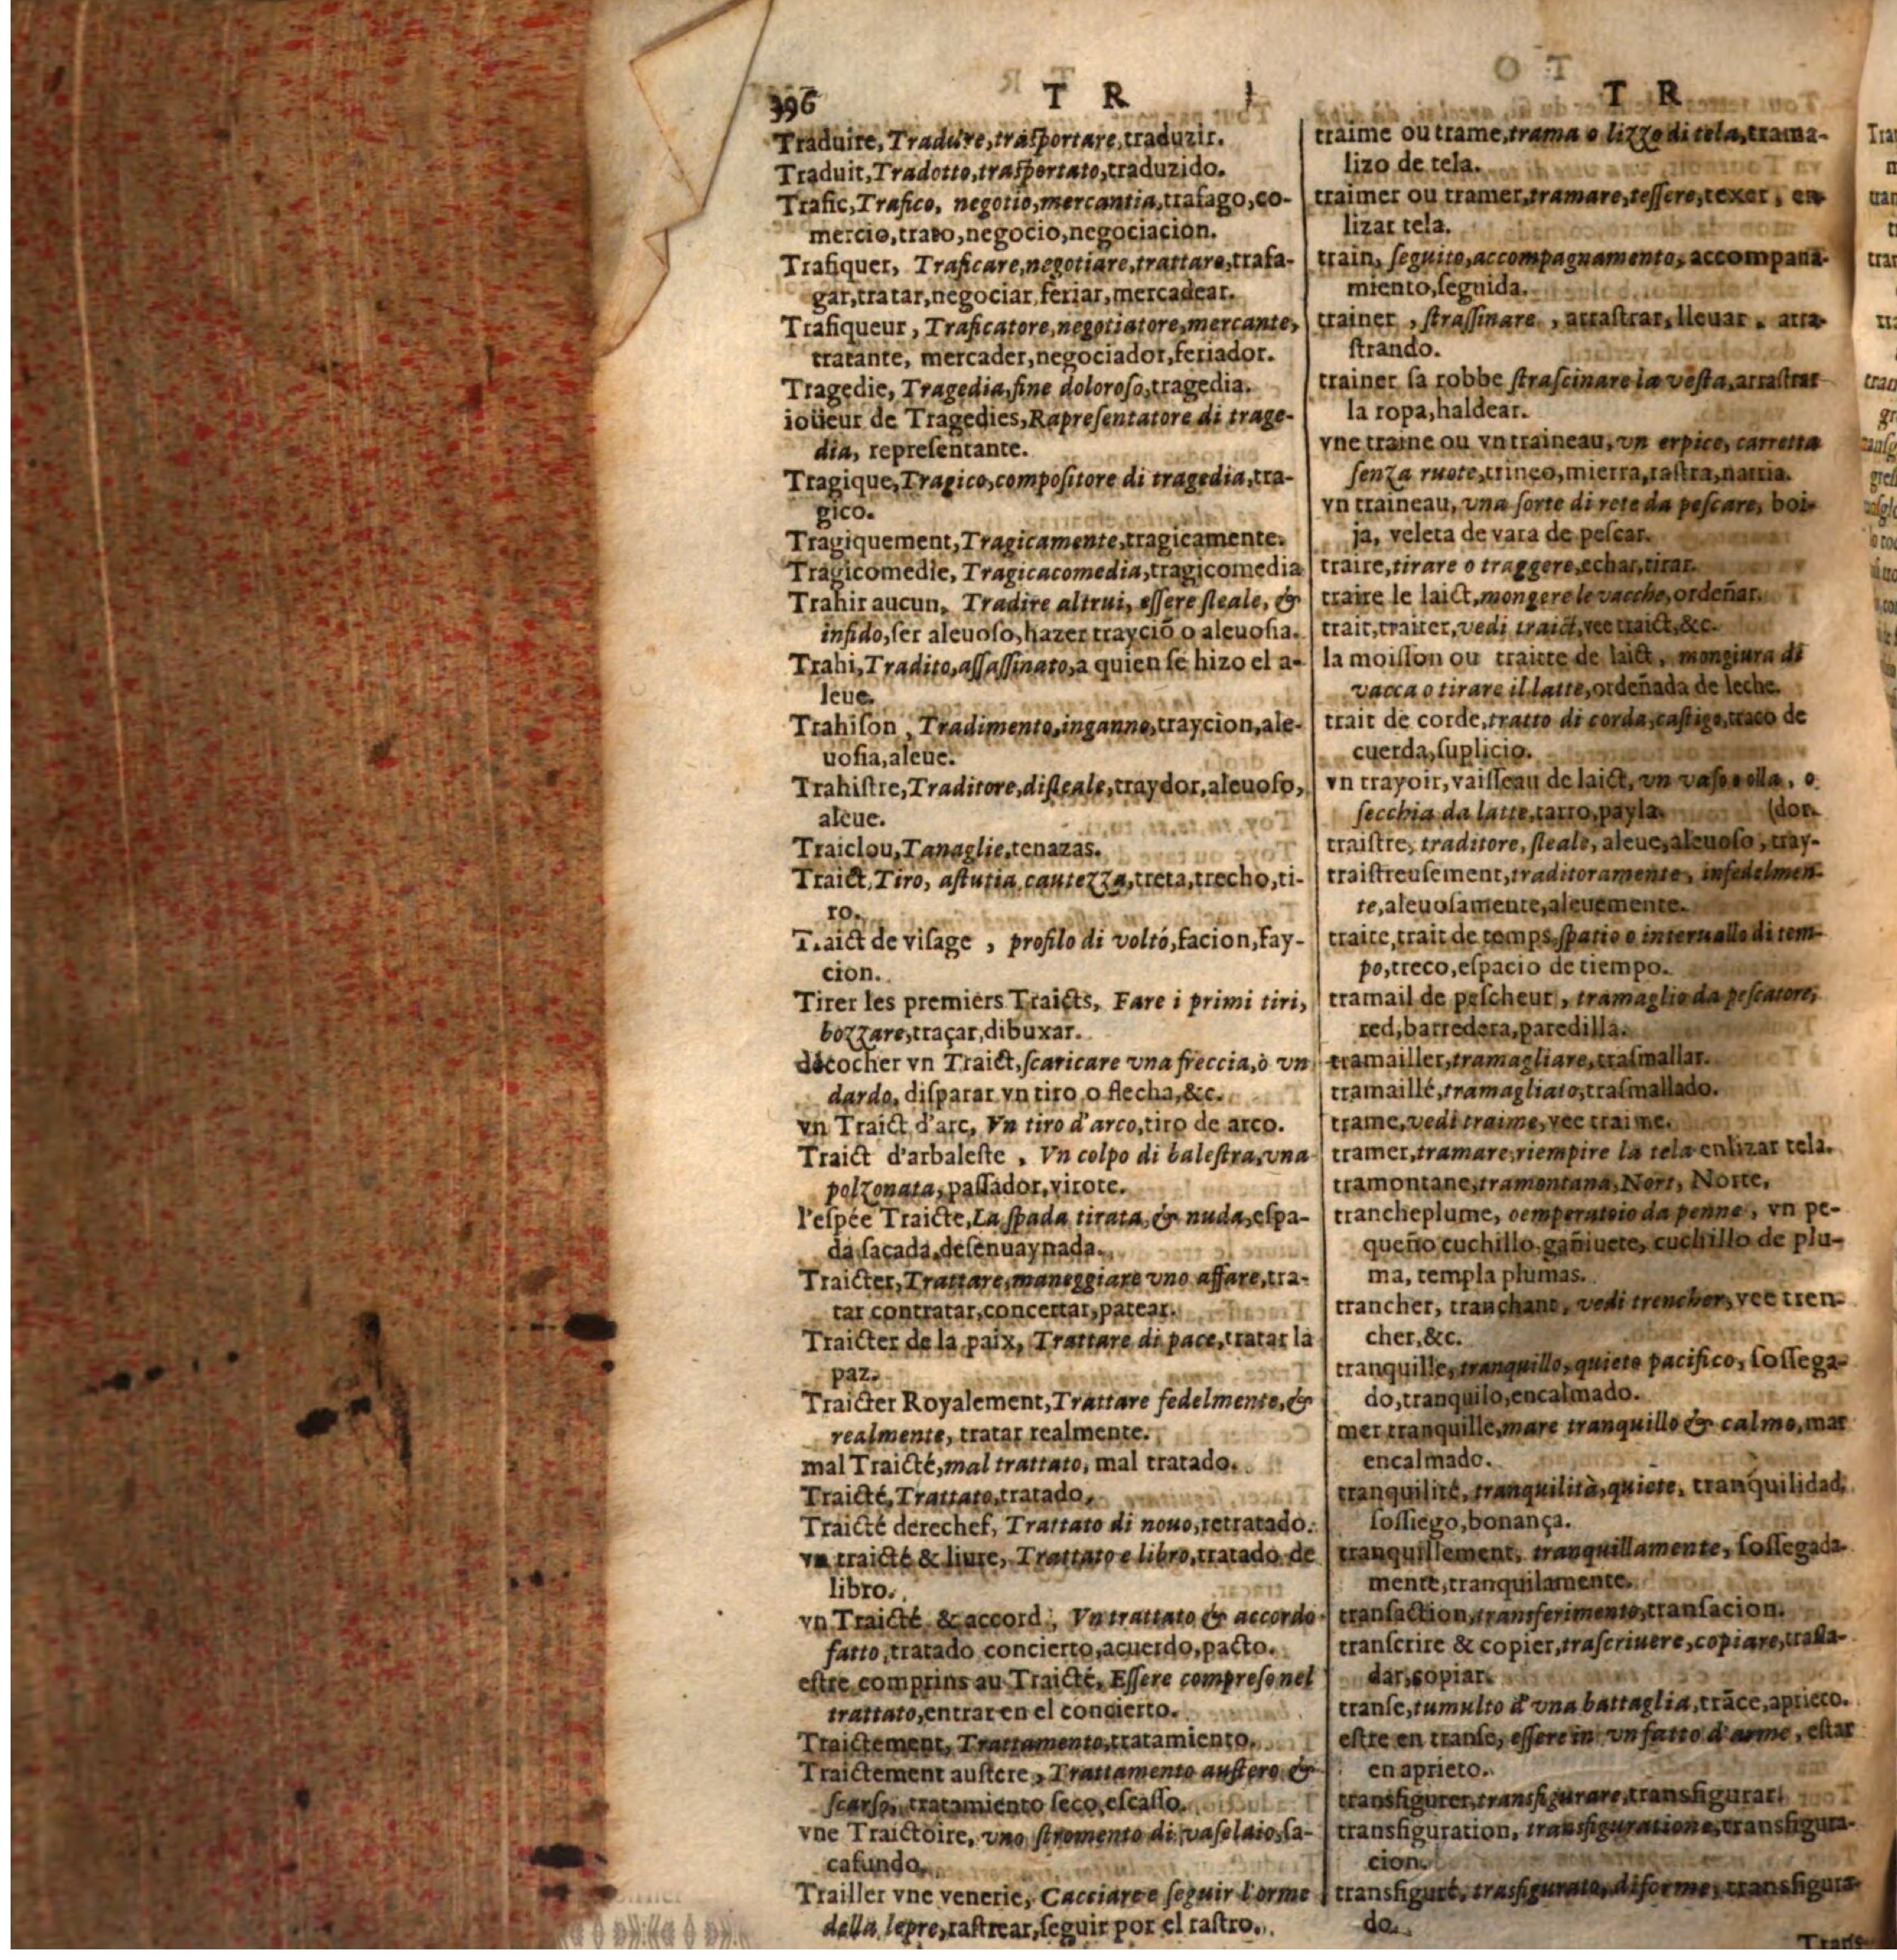 396
T R
Traduire, Tradure, traſportare, traduzir.
Traduit, Tradotto, traſportato, traduzido.
Trafic, Trafico, negotio, mercantia, trafago, co-
mercio, trato, negocio, negociacion.
Trafiquer, Traficare, negotiare, trattare, trafa-
gar, tratar, negociar, feriar, mercadear.
Trafiqueur, Traficatore, negotiatore, mercante,
tratante, mercader, negociador, feriador.
Tragedie, Tragedia, fine doloroſo, tragedia.
ioüeur de Tragedies, Rapreſentatore di trage-
dia, repreſentante.
Tragique, Tragico, compoſitore di tragedia, tra-
gico.
Tragiquement, Tragicamente, tragicamente.
Tragicomedie, Tragicacomedia, tragicomedia
Trahir aucun, Tradire altrui, eſſere ſleale, &
infido, ſer aleuoſo, hazer trayciõ o aleuoſia.
Trahi, Tradito, aſſaſſinato, a quien ſe hizo el a-
leue.
Trahiſon, Tradimento, inganno, traycion, ale-
uoſia, aleue.
Trahiſtre, Traditore, diſleale, traydor, aleuoſo,
aleue.
Traiclou, Tanaglie, tenazas.
Traict, Tiro, aſtutia, cautezza, treta, trecho, ti-
ro.
Traict de viſage, profilo di volto, facion, fay-
cion.
Tirer les premiers Traicts, Fare i primi tiri,
bozzare, traçar, dibuxar.
décocher vn Traict, ſcaricare vna freccia, ò vn
dardo, diſparar vn tiro o flecha, &c.
vn Traict d'arc, Vn tiro d'arco, tiro de arco.
Traict d'arbaleſte, Vn colpo di baleſtra, vna
polzonata, paſſador, virote.
l'eſpée Traicte, La ſpada tirata, & nuda, eſpa-
da ſacada, deſenuaynada.
Traicter, Trattare, maneggiare vno affare, tra-
tar contratar, concertar, patear.
Traicter de la paix, Trattare di pace, tratar la
paz.
Traicter Royalement, Trattare fedelmente, &
realmente, tratar realmente.
mal Traicté, mal trattato, mal tratado.
Traicté, Trattato, tratado.
Traicté derechef, Trattato di nouo, retratado.
vn traicté & liure, Trattato e libro, tratado de
libro.
vn Traicté & accord, Vn trattato & accordo
fatto, tratado concierto, acuerdo, pacto.
eſtre comprins au Traicté, Eſſere compreſo nel
trattato, entrar en el concierto.
Traictement, Trattamento, tratamiento.
Traictement auſtere, Trattamento auſtero &
ſcarſo, tratamiento ſeco, eſcaſſo.
vne Traictoire, vno ſtromento di vaſelaio, ſa-
cafundo.
Trailler vne venerie, Cacciare e ſeguir l'orme
della lepre, raſtrear, ſeguir por el raſtro.
T R
traime ou trame, trama o lizzo di tela, trama-
lizo de tela.
traimer ou tramer, tramare, teſſere, texer, en-
lizar tela.
train, ſeguito, accompagnamento, accompaña-
miento, ſeguida.
trainer, ſtraſſinare, arraſtrar, lleuar, arra-
ſtrando.
trainer ſa robbe ſtraſcinare la veſta, arraſtrar
la ropa, haldear.
vne traine ou vn traineau, vn erpice, carretta
ſenza ruote, trineo, mierra, raſtra, narria.
vn traineau, vna ſorte di rete da peſcare, boi-
ja, veleta de vara de peſcar.
traire, tirare o traggere, echar, tirar.
traire le laict, mongere le vacche, ordeñar.
trait, traiter, vedi traict, vee traict, &c.
la moiſſon ou traicte de laict, mongiura di
vacca o tirare il latte, ordeñada de leche.
trait de corde, tratto di corda, caſtigo, traco de
cuerda, ſuplicio.
vn trayoir, vaiſſeau de laict, vn vaſo o olla, o
ſecchia da latte, tarro, payla. (dor.
traiſtre, traditore, ſleale, aleue, aleuoſo, tray-
traiſtreuſement, traditoramente, infedelmen-
te, aleuoſamente, aleuemente.
traite, trait de temps, ſpatio o interuallo di tem-
po, treco, eſpacio de tiempo.
tramail de peſcheur, tramaglio da peſcatore,
red, barredera, paredilla.
tramailler, tramagliare, traſmallar.
tramaillé, tramagliato, traſmallado.
trame, vedi traime, vee traime.
tramer, tramare, riempire la tela enlizar tela.
tramontane, tramontana, Nort, Norte,
trancheplume, oemperatoio da penne, vn pe-
queño cuchillo, gañiuete, cuchillo de plu-
ma, templa plumas.
trancher, tranchant, vedi trencher, vee tren-
cher, &c.
tranquille, tranquillo, quieto pacifico, ſoſſega-
do, tranquilo, encalmado.
mer tranquille, mare tranquillo & calmo, mar
encalmado.
tranquilité, tranquilità, quiete, tranquilidad,
ſoſſiego, bonança.
tranquillement, tranquillamente, ſoſſegada-
mente, tranquilamente.
tranſaction, transferimento, tranſacion.
tranſcrire & copier, traſcriuere, copiare, traſla-
dar, copiar.
tranſe, tumulto d'vna battaglia, trãce, aprieto.
eſtre en tranſe, eſſere in vn fatto d'arme, eſtar
en aprieto.
transfigurer, transfigurare, transfigurar.
transfiguration, transfiguratione, transfigura-
cion.
transfiguré, trasfigurato, diforme, transfigura-
do.
Trans-